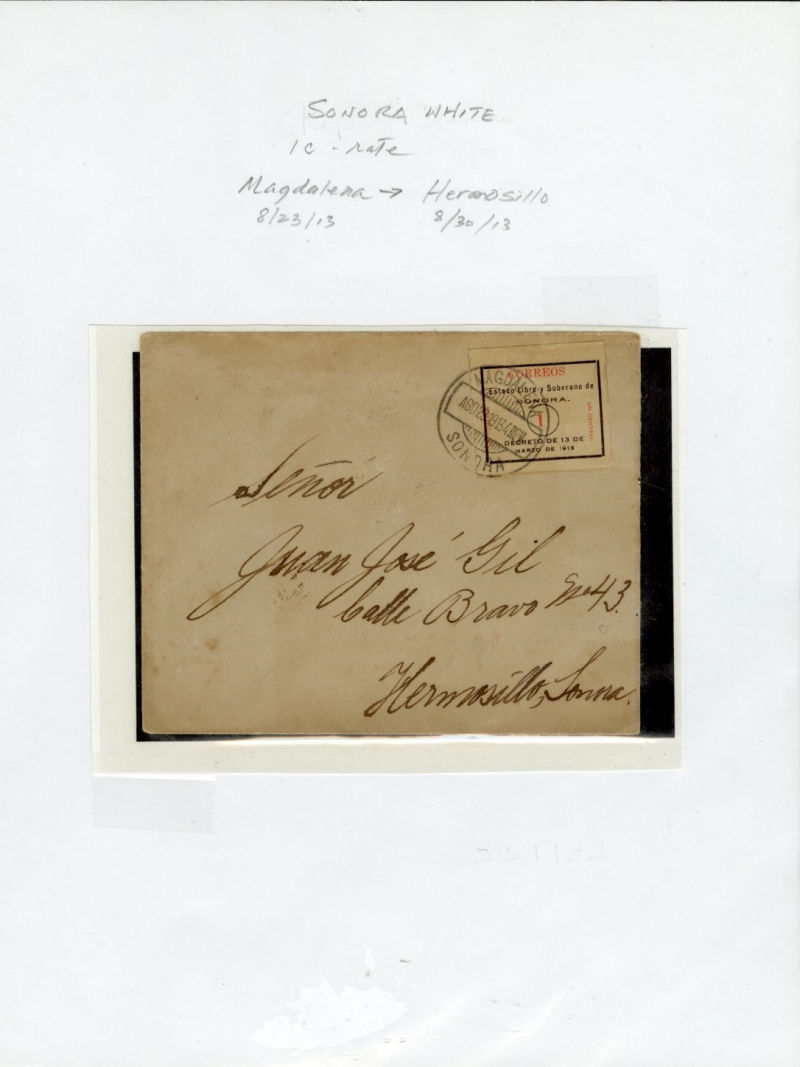 SONORA WHITE
1c - rate
Magdalena → Hermosillo
8/23/13 8/30/13
CORREOS
Estado Libre y Soberano de
SONORA.
1
UN CENTAVO
DECRETO DE 13 DE
MARZO DE 1913
MAGDALENA
SONORA
Señor
Juan José Gil
Calle Bravo No 43.
Hermosillo, Sonora.